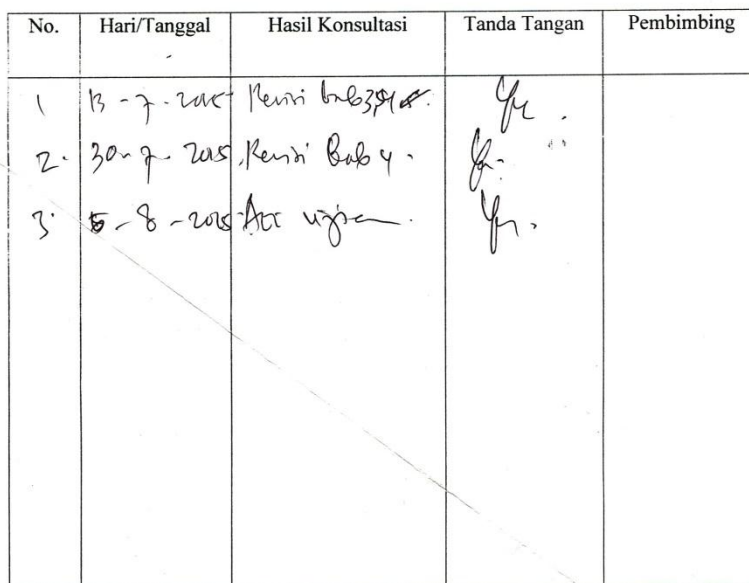 No. Hari/Tanggal Hasil Konsultasi Tanda Tangan Pembimbing
1 13-7-2015 Revisi bab 3,4
2. 30-7-2015 Revisi Bab 4.
3. 5-8-2015 Acc ujian.